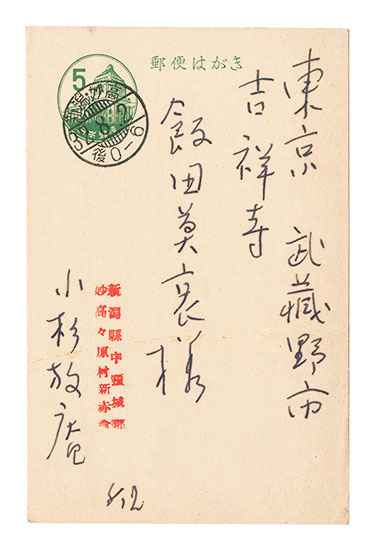 郵便はがき
5
新潟・妙高
後0-6
東京 武蔵野市
吉祥寺
飯田莫哀様
新潟縣中頸城郡
妙高々原村新赤倉
小杉放庵